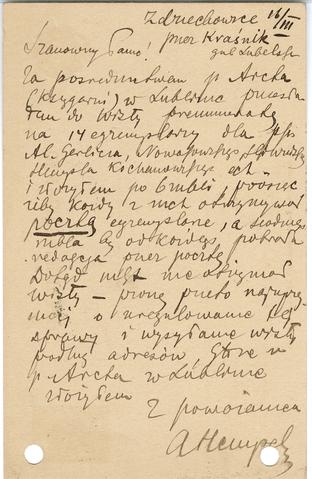 Zdziechowice 16/III
przez Kraśnik
gub Lubelska
Szanowny Panie!
Za pośrednictwem p Arcta
(Księgarni) w Lublinie przesła-
łem do Wisły prenumeratę
na 14 egzemplarzy dla pp:
Al. Gerlicza, Nowakowskiego,
Hempla Kochanowskiego etc.
i złożyłem po 6 rubli, prosząc
żeby każdy z nich otrzymywał
pocztą egzemplarze, a siódmego
rubla by od każdego pobrała
redakcja przez pocztę
Dotąd nikt nie otrzymał
Wisły – proszę przeto najuprzej-
miej o uregulowanie tej
sprawy i wysyłanie Wisły
podług adresów, które u
p Arcta w Lublinie
złożyłem
Z poważaniem
A Hempel